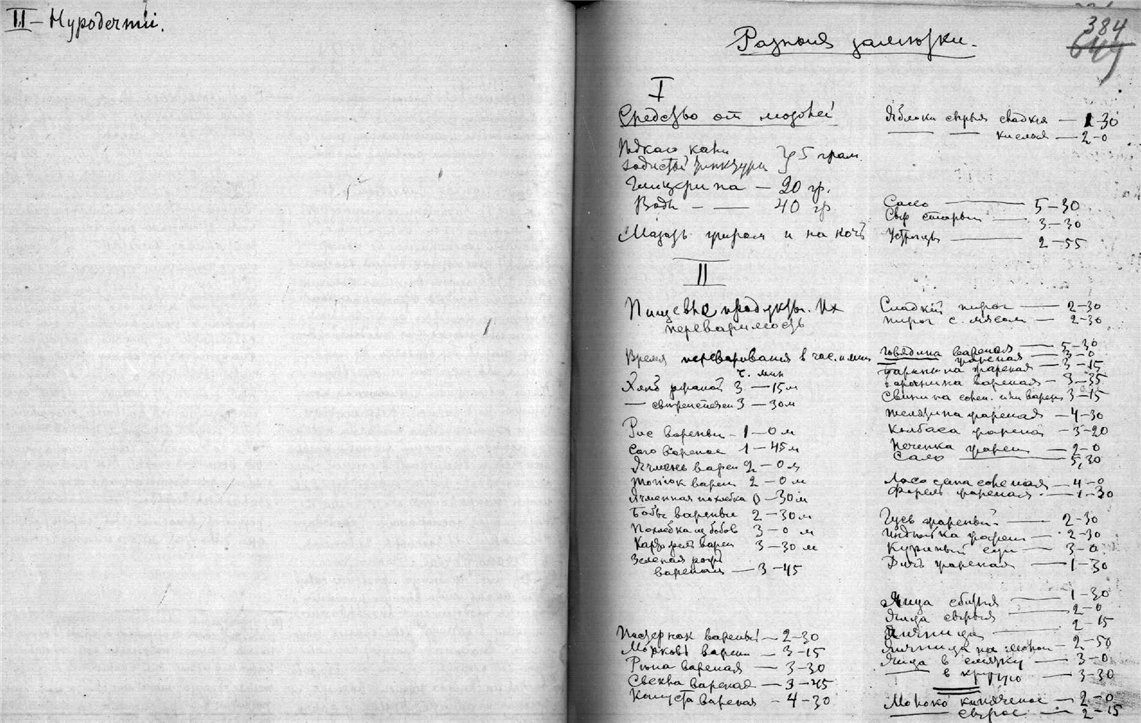 II – Нуродечти.
384
649
Разныя заметки.
I
Средство от мозолей
Едкого кали
Іодистой тинктуры } 5 грам.
Глицерина — 20 гр.
Воды — — 40 гр
Мазать утром и на ночь
II
Пищевые продукты. Их
переваримость
Время переваривания в час. и мин
ч. мин
Хлеб ржаной 3 — 15 м
— 3 — 30 м
Рис вареный – 1 – 0 м
Саго вареное 1 – 45 м
Ячмень варен 2 – 0 м
варен 2 – 0 м
Ячменная похлебка 0 – 30 м
Бобы вареные 2 – 30 м
Похлебка из бобов 3 – 0 м
Картофель варен 3 – 30 м
Зеленая
вареная — 3 – 45
Пастернак вареный — 2 – 30
Морковь варен — 3 – 15
Репа вареная — 3 – 30
Свекла вареная — 3 – 45
Капуста вареная — 4 – 30
Яблоки сырыя сладкія — 1 – 30
— — кислыя — 2 – 0
Сало — 5 – 30
Сыр старый — 3 – 30
Устрицы — 2 – 55
Сладкій пирог — 2 – 30
пирог с мясом — 2 – 30
Говядина вареная — 5 – 30
жареная — 3 – 0
Баранина жареная — 3 – 15
вареная — 3 – 35
Свинина солен. или варен 3 – 15
Телятина жареная — 4 – 30
Колбаса жарена — 3 – 20
Печенка жарен — 2 – 0
Сало — 5,30
Лососина соленая — 4 – 0
Форель жареная — 1 – 30
Гусь жареный — 2 – 30
Индюшка жарен — 2 – 30
Куриный суп — 3 – 0
Дичь жареная — 1 – 30
Яйца сбитыя — 1 – 30
Яйца сырыя — 2 – 0
Яичница — 2 – 15
Яичница на молоке — 2 – 50
Яйца в смятку — 3 – 0
— в крутую — 3 – 30
Молоко кипяченое — 2 – 0
— сырое — 2 – 15